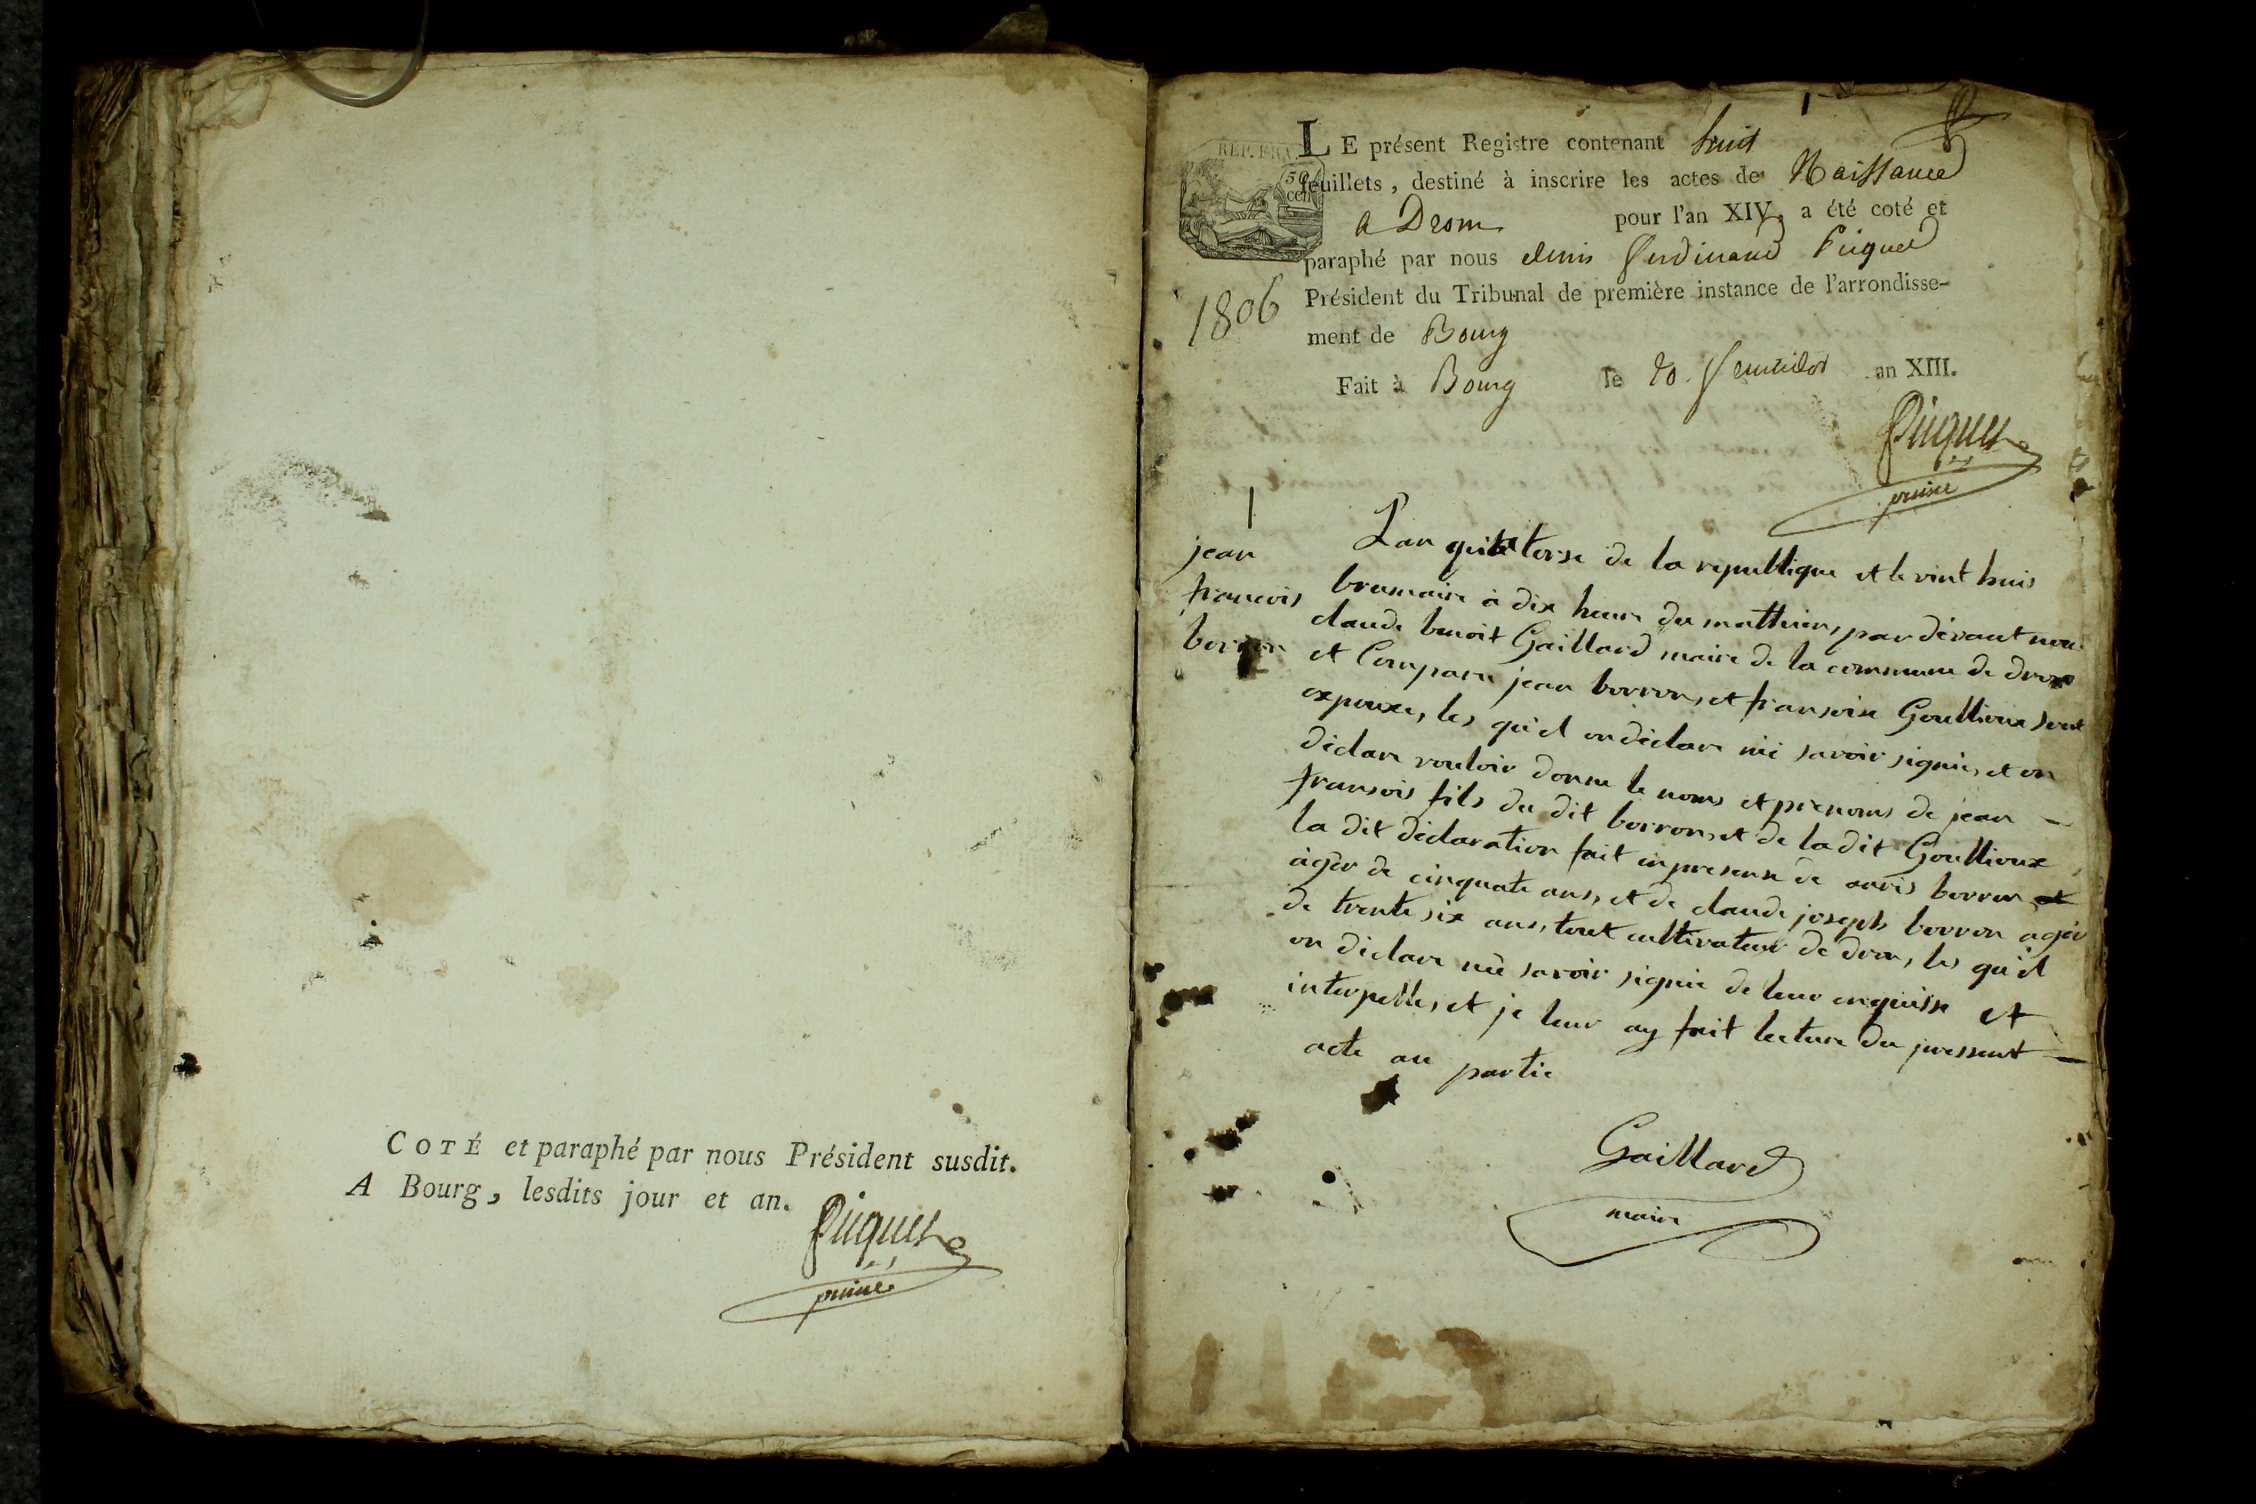 COTÉ et paraphé par nous Président susdit.
A Bourg, lesdits jour et an.
Piquet
1
REP. FRA.
50
cen
LE présent Registre contenant huit
feuillets, destiné à inscrire les actes de Naissance
a Drom pour l'an XIV, a été coté et
paraphé par nous denis ferdinand Piquet
Président du Tribunal de première instance de l'arrondisse-
ment de Bourg
1806
Fait à Bourg le 20. fructidor an XIII.
Piquet
1
jean
francois
borron
L'an quatorse de la republique et le vint huis
brumaire à dix heure du mattien, par dévant nous
claude benoit Gaillard maire de la commune de drom
et Compare jean borron, et fransoise Goullioux sont
expouxe, les qu'il on déclare né savoir signié, et on
déclare vouloir donne le noms et prenoms de jean
fransois fils du dit borron, et de la dit Goullioux
la dit déclaration fait en presense de borron
àgér de cinquate ans, et de claude joseph borron agér
de trente six ans, tout cultivateur de drom, les qu'il
on déclare né savoir signié de leur enquisse et
interpelle, et je leur ay fait lecture du pressent
acte au partie
Gaillard
maire